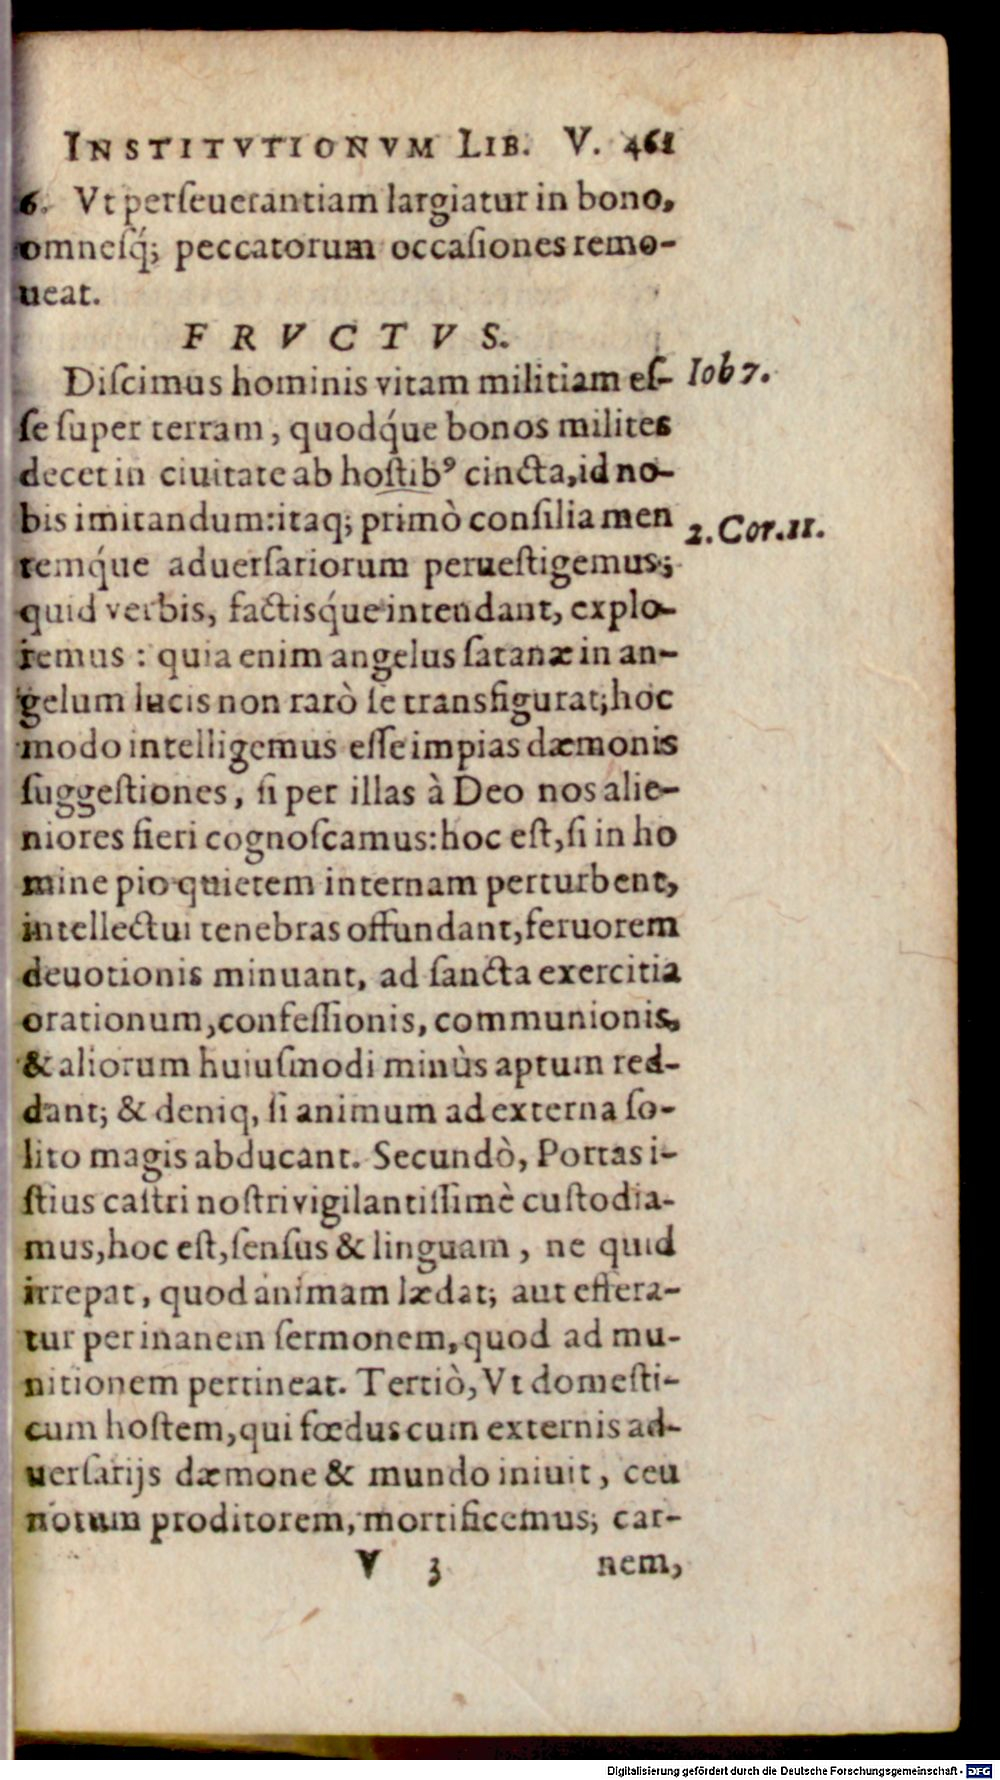 INSTITVTIONVM LIB. V. 461
6. Vt perſeuerantiam largiatur in bono,
omneſq́; peccatorum occaſiones remo-
ueat.
FRVCTVS.
Diſcimus hominis vitam militiam eſ-
Iob 7.
ſe ſuper terram, quodq́ue bonos milites
decet in ciuitate ab hoſtibꝰ cincta, id no-
bis imitandum: itaq; primò conſilia men
2. Cor. 11.
temq́ue aduerſariorum perueſtigemus;
quid verbis, factisq́ue intendant, explo-
remus: quia enim angelus ſatanæ in an-
gelum lucis non rarò ſe transfigurat; hoc
modo intelligemus eſſe impias dæmonis
ſuggeſtiones, ſi per illas à Deo nos alie-
niores fieri cognoſcamus: hoc eſt, ſi in ho
mine pio quietem internam perturbent,
intellectui tenebras offundant, feruorem
deuotionis minuant, ad ſancta exercitia
orationum, confeſſionis, communionis,
& aliorum huiuſmodi minùs aptum red-
dant; & deniq, ſi animum ad externa ſo-
lito magis abducant. Secundò, Portas i-
ſtius caſtri noſtri vigilantiſſimè cuſtodia-
mus, hoc eſt, ſenſus & linguam, ne quid
irrepat, quod animam lædat; aut effera-
tur per inanem ſermonem, quod ad mu-
nitionem pertineat. Tertiò, Vt domeſti-
cum hoſtem, qui fœdus cum externis ad-
uerſarijs dæmone & mundo iniuit, ceu
notum proditorem, mortificemus; car-
V 3 nem,
Digitalisierung gefördert durch die Deutsche Forschungsgemeinschaft - DFG